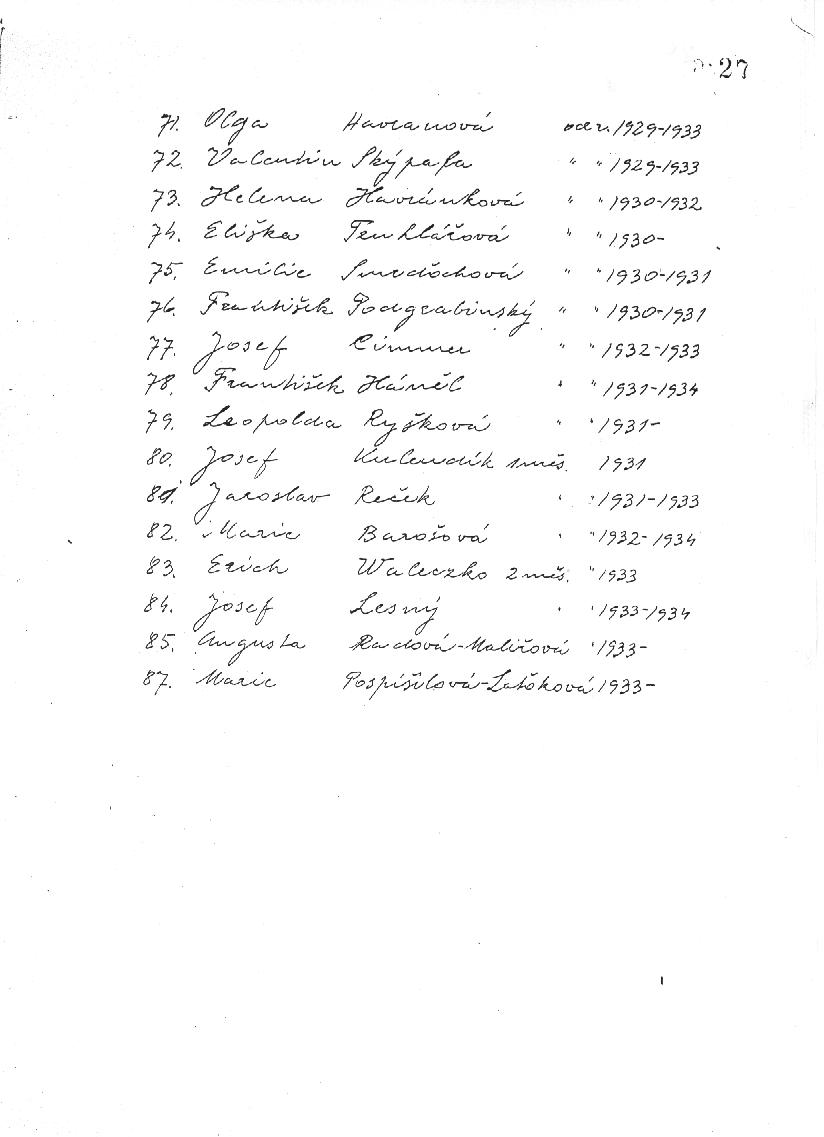 27
71. Olga Havranová od r. 1929-1933
72. Valentin Skýpala " " 1929-1933
73. Helena Havránková " " 1930-1932
74. Eliška " " 1930-
75. Emilie " " 1930-1931
76. František Podgrabinský " " 1930-1931
77. Josef Cimmer " " 1932-1933
78. František Háněl " " 1931-1934
79. Leopolda Ryšková " " 1931-
80. Josef Kulendík 1 měs. 1931
81. Jaroslav Reček " " 1931-1933
82. Marie Barošová " " 1932-1934
83. Erich Waleczko 2 měs. " 1933
84. Josef Lesný " " 1933-1934
85. Augusta Radová-Malířová " 1933-
87. Marie Pospíšilová-Latóková 1933-